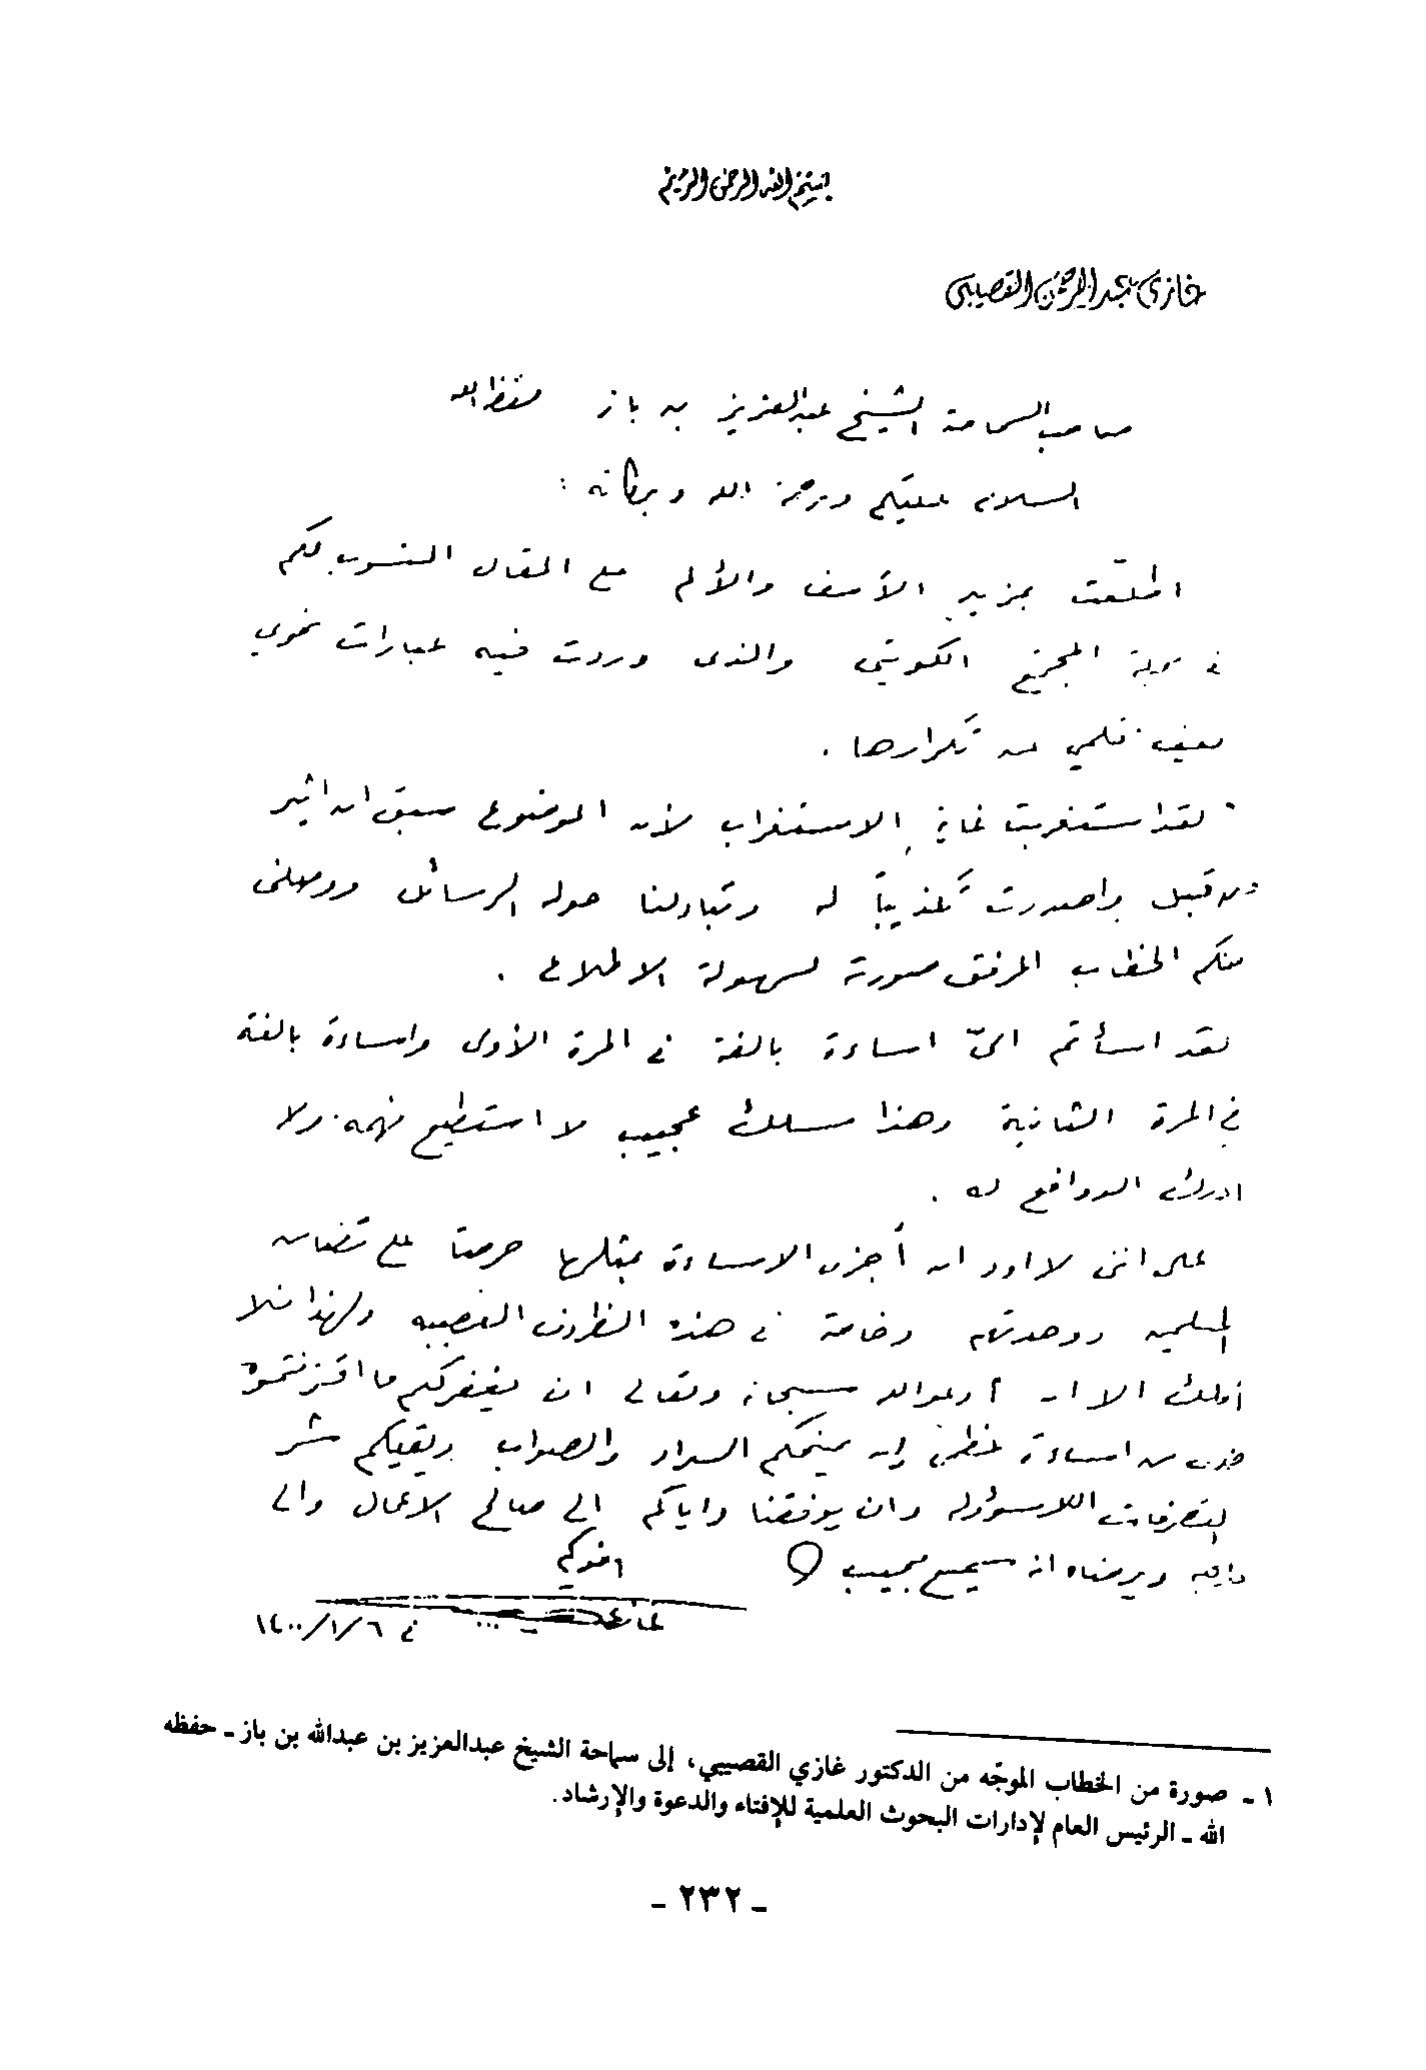 بسم الله الرحمن الرحيم
غازي عبدالرحمن القصيبي
صاحب السماحة الشيخ عبدالعزيز بن باز حفظه الله
السلام عليكم ورحمة الله وبركاته :
اطلعت بمزيد الأسف والألم على المقال المنسوب لكم
في مجلة المجتمع الكويتي والذى وردت فيه عبارات نحوي
يعف قلمي عن تكرارها .
لقد استغربت غاية الاستغراب لأن الموضوع سبق ان اثير
من قبل واصدرت تكذيباً له وتبادلنا حوله الرسائل ووصلنى
منكم الخطاب المرفق صورته لسهولة الاطلاع .
لقد اسأتم اليّ اساءة بالغة في المرة الأولى واساءة بالغة
في المرة الثانية وهذا مسلك عجيب لا استطيع فهمه ولا
ادرك الدوافع له .
على اننى لا اود ان أجزى الاساءة بمثلها حرصا على تضامن
المسلمين ووحدتهم وخاصة في هذه الظروف العصيبه ولهذا فلا
أملك الا ان ادعو الله سبحانه وتعالى ان يغفر لكم ما اقترفتموه
من اساءة وان يمنحكم السداد والصواب ويقيكم شر
التصرفات اللامسؤوله وان يوفقنا واياكم الى صالح الاعمال والى
ويرضاه انه سميع مجيب
اخوكم
غازي
في ٦/١/١٤٠٠
١ ـ صورة من الخطاب الموجّه من الدكتور غازي القصيبي، إلى سماحة الشيخ عبدالعزيز بن عبدالله بن باز ـ حفظه
الله ـ الرئيس العام لإدارات البحوث العلمية للإفتاء والدعوة والإرشاد.
ـ ٢٣٢ ـ